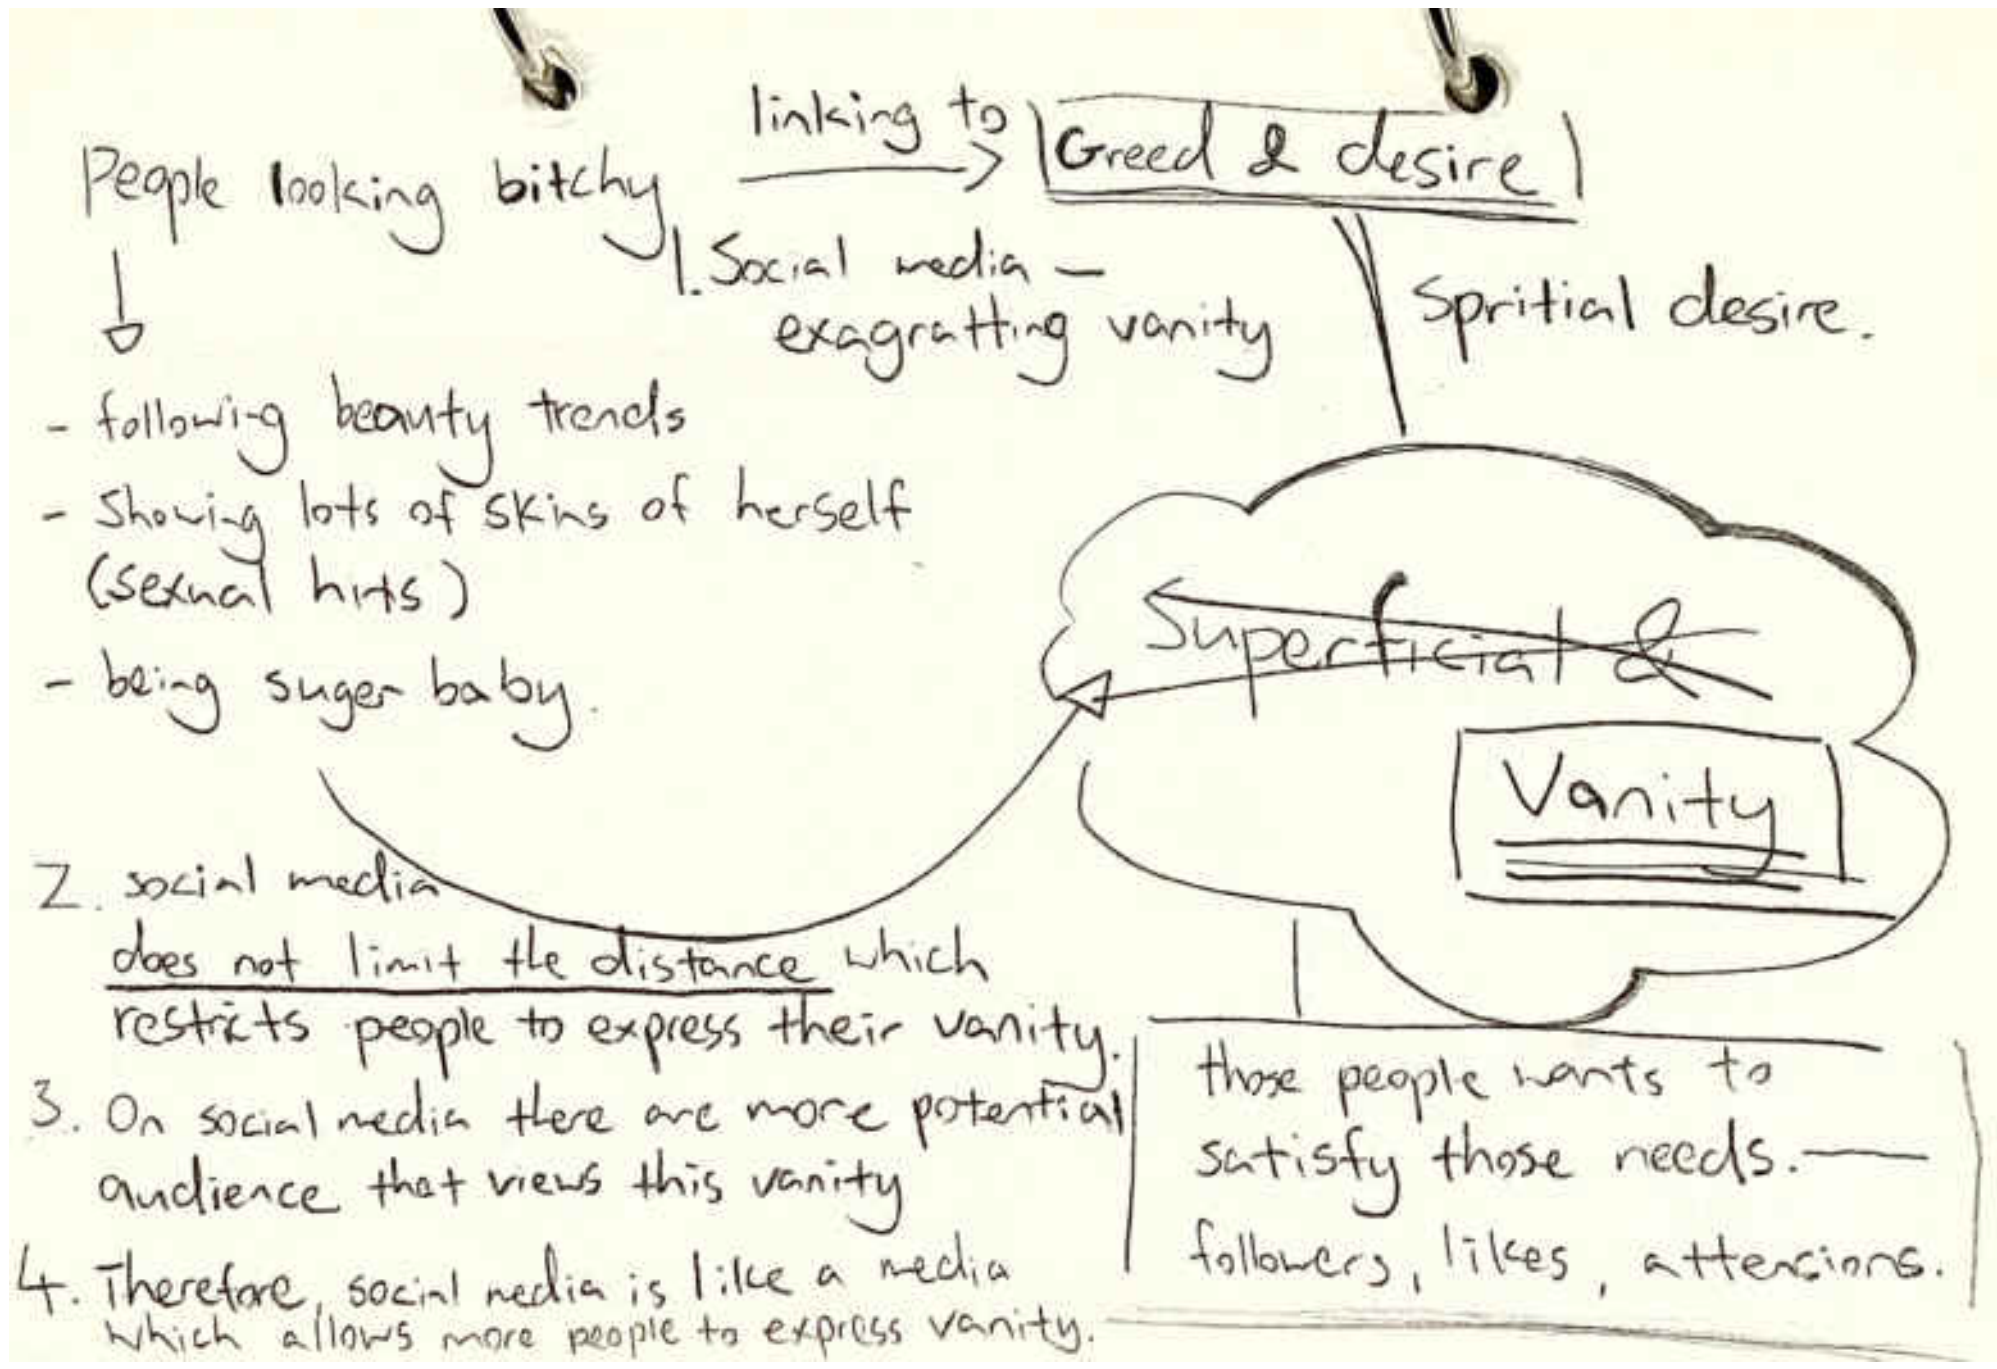 People looking bitchy
linking to
Greed & desire
1. Social media –
exagratting vanity
Spritial desire.
- following beauty trends
- Showing lots of skins of herself
(sexual hits)
- being suger baby.
Superficial &
Vanity
2. social media
does not limit the distance which
restricts people to express their vanity.
3. On social media there are more potential
audience that views this vanity
4. Therefore, social media is like a media
which allows more people to express vanity.
those people wants to
satisfy those needs. —
followers, likes, attensions.